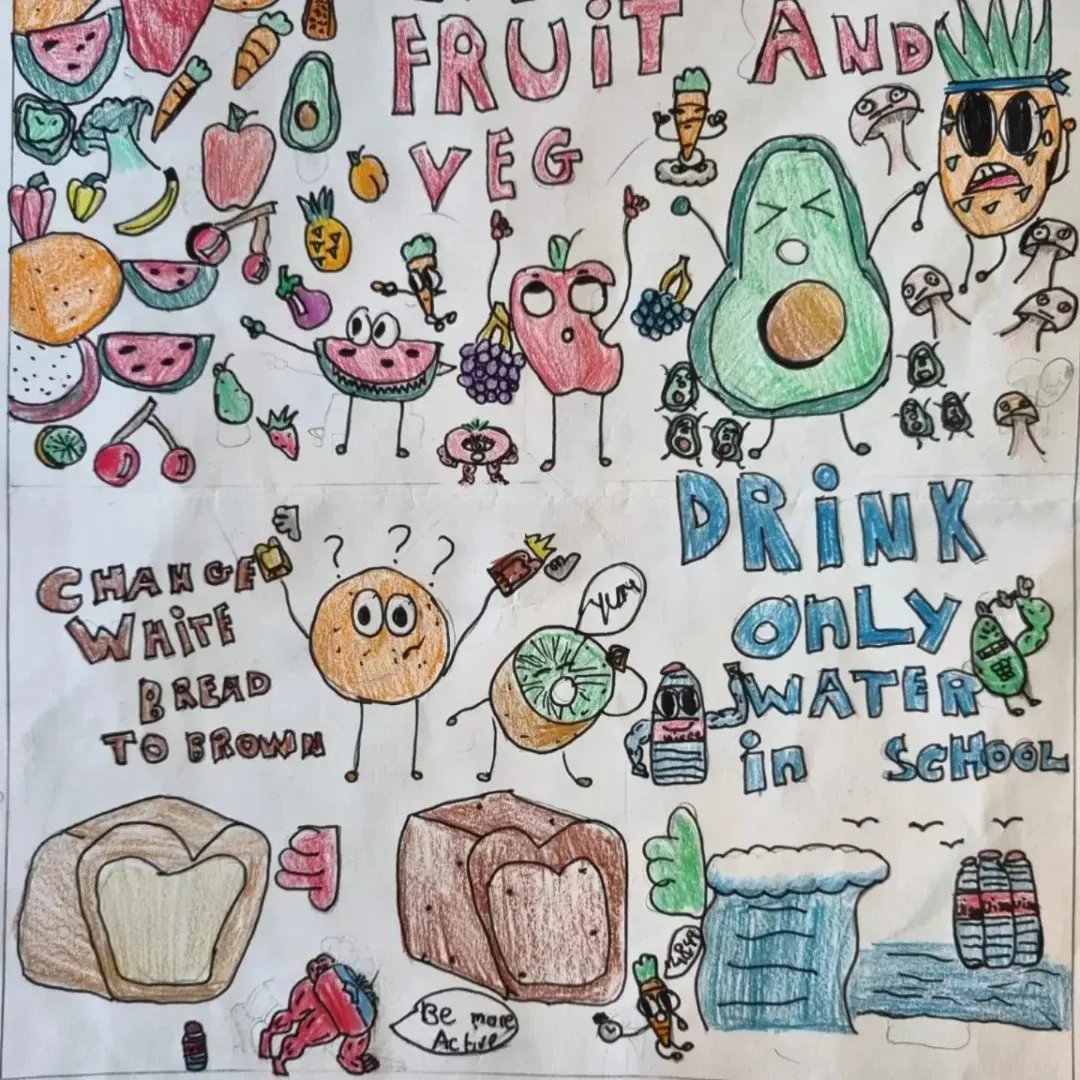 FRUiT AND
VEG
CHANGE
WHiTE
BREAD
TO BROWN
Yum
DRiNK
OnLY
WATER
in SCHOOL
Be more
Active